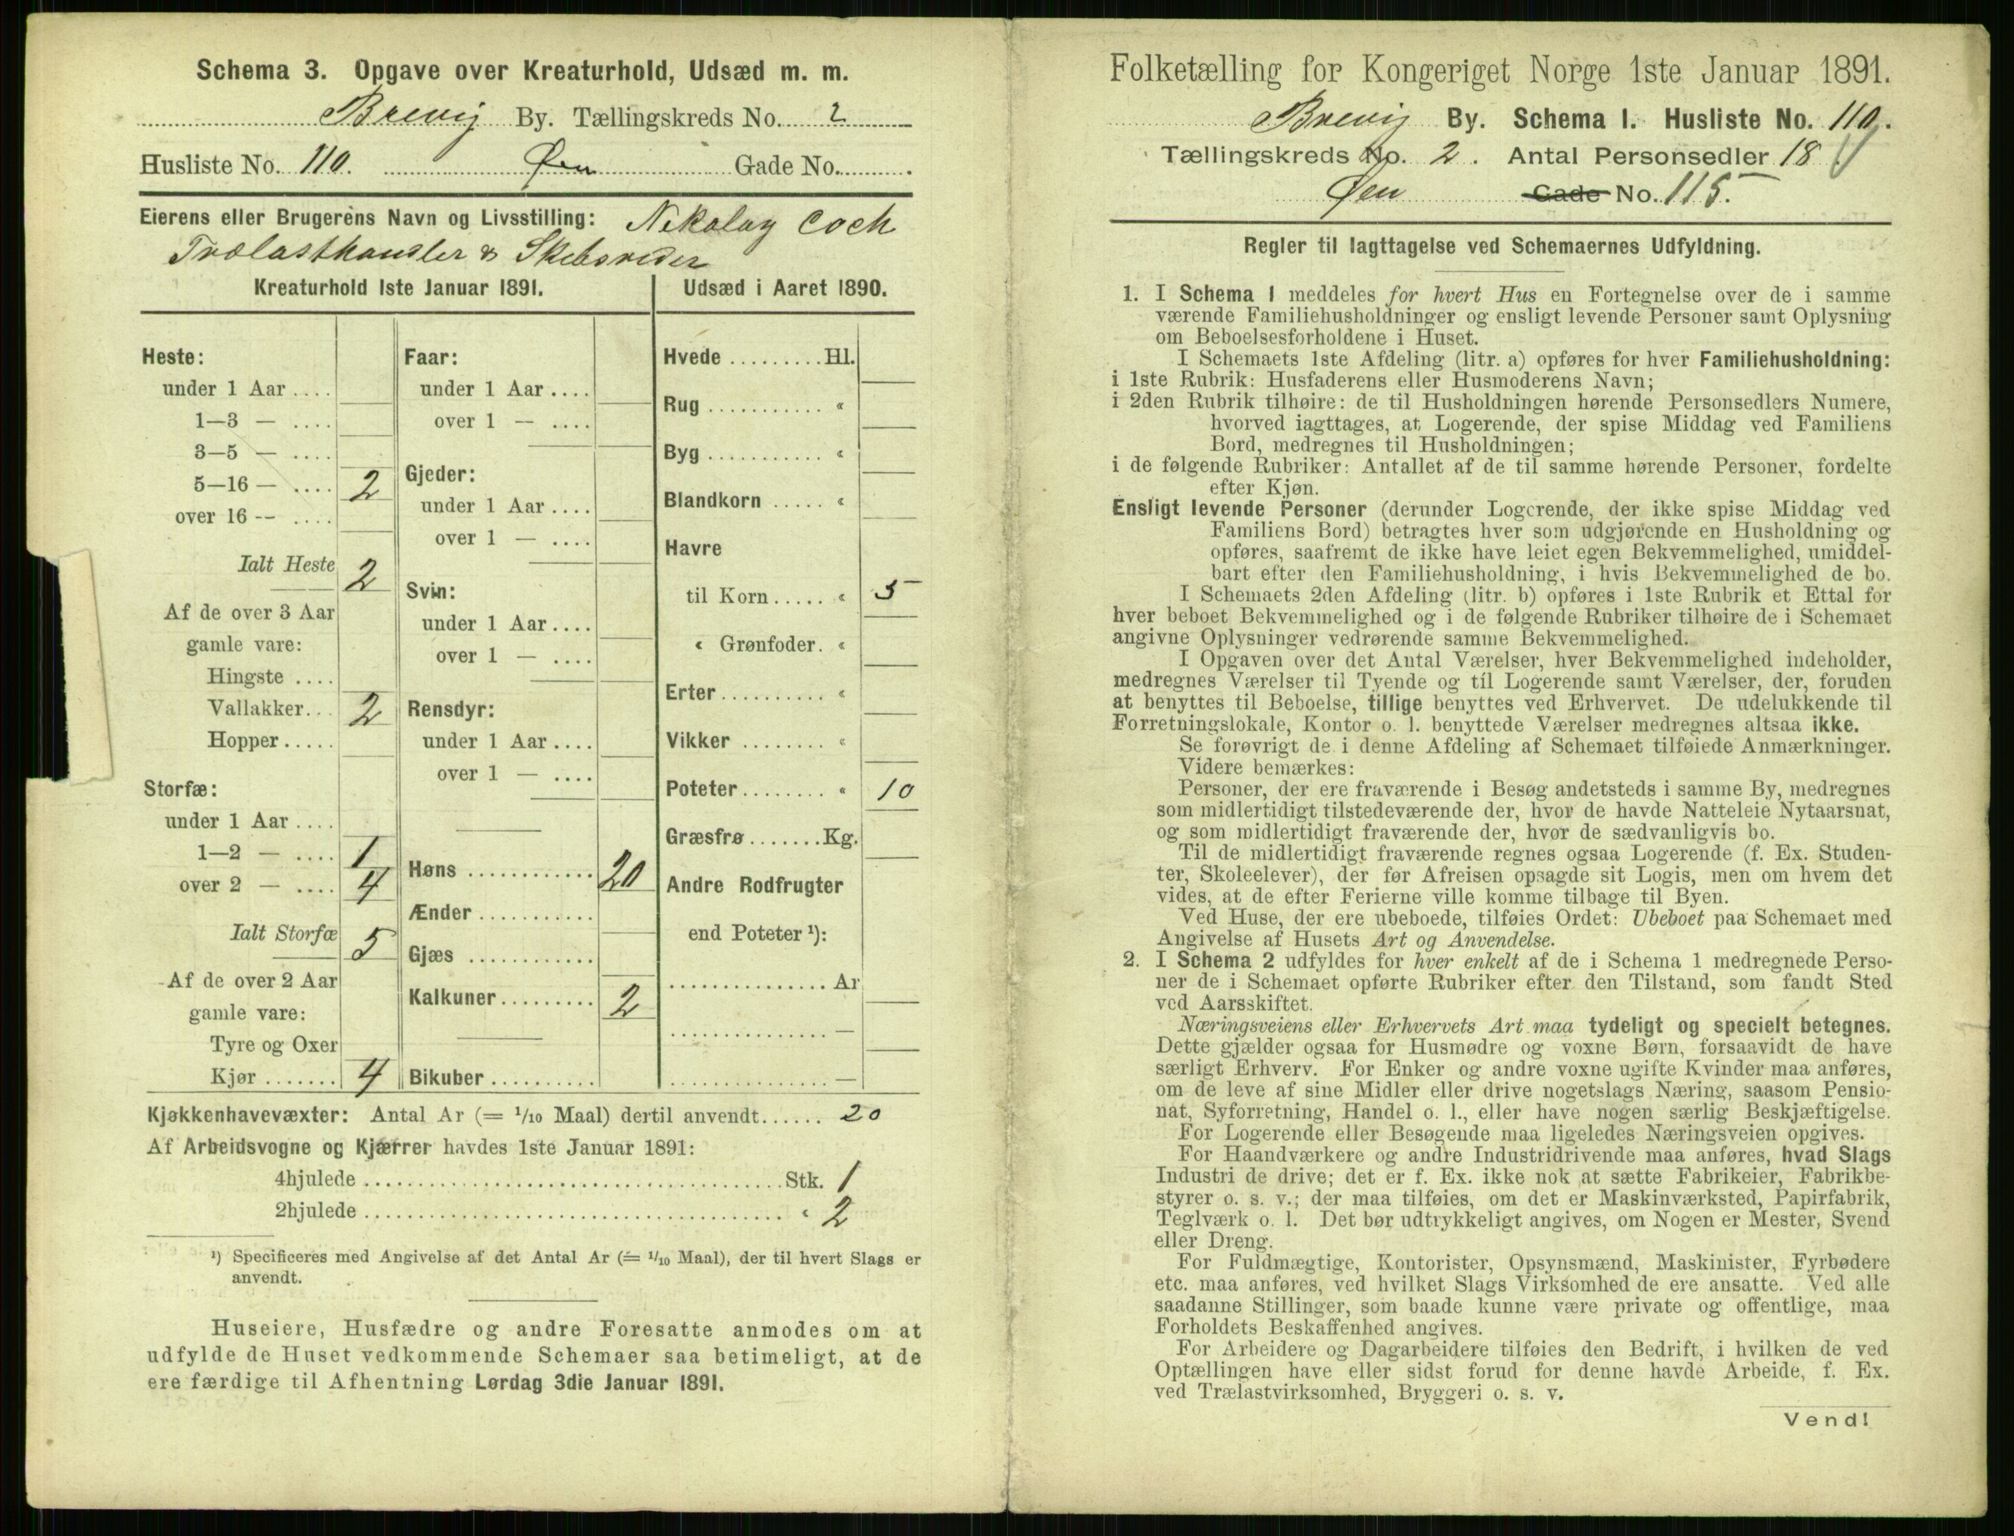 Schema 3. Opgave over Kreaturhold, Udsæd m. m.
Brevig By. Tællingskreds No. 2
Husliste No. 110. Øen Gade No.
Eierens eller Brugerens Navn og Livsstilling: Nikolay Coch
Trælasthandler & Skibsreder
Kreaturhold 1ste Januar 1891.
Heste:
under 1 Aar ....
1—3 — ....
3—5 — ....
5—16 — .... 2
over 16 — ....
Ialt Heste 2
Af de over 3 Aar
gamle vare:
Hingste ....
Vallakker... 2
Hopper .....
Storfæ:
under 1 Aar ....
1—2 — .... 1
over 2 — .... 4
Ialt Storfæ 5
Af de over 2 Aar
gamle vare:
Tyre og Oxer
Kjør ....... 4
Faar:
under 1 Aar ....
over 1 — ....
Gjeder:
under 1 Aar ....
over 1 — ....
Svin:
under 1 Aar ....
over 1 — ....
Rensdyr:
under 1 Aar ....
over 1 — ....
Høns ............ 20
Ænder ...........
Gjæs ............
Kalkuner ......... 2
Bikuber ..........
Udsæd i Aaret 1890.
Hvede ......... Hl.
Rug ........... «
Byg ........... «
Blandkorn ..... «
Havre
til Korn ..... « 5
« Grønfoder. «
Erter .......... «
Vikker ........ «
Poteter ........ « 10
Græsfrø ....... Kg.
Andre Rodfrugter
end Poteter ¹):
............... Ar
............... —
............... —
Kjøkkenhavevæxter: Antal Ar (= 1/10 Maal) dertil anvendt ...... 20
Af Arbeidsvogne og Kjærrer havdes 1ste Januar 1891:
4hjulede ........ Stk. 1
2hjulede ........ « 2
¹) Specificeres med Angivelse af det Antal Ar (= 1/10 Maal), der til hvert Slags er
anvendt.
Huseiere, Husfædre og andre Foresatte anmodes om at
udfylde de Huset vedkommende Schemaer saa betimeligt, at de
ere færdige til Afhentning Lørdag 3die Januar 1891.
Folketælling for Kongeriget Norge 1ste Januar 1891.
Brevig By. Schema I. Husliste No. 110.
Tællingskreds No. 2. Antal Personsedler 18.
Øen Gade No. 115.
Regler til Iagttagelse ved Schemaernes Udfyldning.
1. I Schema 1 meddeles for hvert Hus en Fortegnelse over de i samme
værende Familiehusholdninger og ensligt levende Personer samt Oplysning
om Beboelsesforholdene i Huset.
I Schemaets 1ste Afdeling (litr. a) opføres for hver Familiehusholdning:
i 1ste Rubrik: Husfaderens eller Husmoderens Navn;
i 2den Rubrik tilhøire: de til Husholdningen hørende Personsedlers Numere,
hvorved iagttages, at Logerende, der spise Middag ved Familiens
Bord, medregnes til Husholdningen;
i de følgende Rubriker: Antallet af de til samme hørende Personer, fordelte
efter Kjøn.
Ensligt levende Personer (derunder Logerende, der ikke spise Middag ved
Familiens Bord) betragtes hver som udgjørende en Husholdning og
opføres, saafremt de ikke have leiet egen Bekvemmelighed, umiddel-
bart efter den Familiehusholdning, i hvis Bekvemmelighed de bo.
I Schemaets 2den Afdeling (litr. b) opføres i 1ste Rubrik et Ettal for
hver beboet Bekvemmelighed og i de følgende Rubriker tilhøire de i Schemaet
angivne Oplysninger vedrørende samme Bekvemmelighed.
I Opgaven over det Antal Værelser, hver Bekvemmelighed indeholder,
medregnes Værelser til Tyende og til Logerende samt Værelser, der, foruden
at benyttes til Beboelse, tillige benyttes ved Erhvervet. De udelukkende til
Forretningslokale, Kontor o. l. benyttede Værelser medregnes altsaa ikke.
Se forøvrigt de i denne Afdeling af Schemaet tilføiede Anmærkninger.
Videre bemærkes:
Personer, der ere fraværende i Besøg andetsteds i samme By, medregnes
som midlertidigt tilstedeværende der, hvor de havde Natteleie Nytaarsnat,
og som midlertidigt fraværende der, hvor de sædvanligvis bo.
Til de midlertidigt fraværende regnes ogsaa Logerende (f. Ex. Studen-
ter, Skoleelever), der før Afreisen opsagde sit Logis, men om hvem det
vides, at de efter Ferierne ville komme tilbage til Byen.
Ved Huse, der ere ubeboede, tilføies Ordet: Ubeboet paa Schemaet med
Angivelse af Husets Art og Anvendelse.
2. I Schema 2 udfyldes for hver enkelt af de i Schema 1 medregnede Perso-
ner de i Schemaet opførte Rubriker efter den Tilstand, som fandt Sted
ved Aarsskiftet.
Næringsveiens eller Erhvervets Art maa tydeligt og specielt betegnes.
Dette gjælder ogsaa for Husmødre og voxne Børn, forsaavidt de have
særligt Erhverv. For Enker og andre voxne ugifte Kvinder maa anføres,
om de leve af sine Midler eller drive nogetslags Næring, saasom Pensio-
nat, Syforretning, Handel o. l., eller have nogen særlig Beskjæftigelse.
For Logerende eller Besøgende maa ligeledes Næringsveien opgives.
For Haandværkere og andre Industridrivende maa anføres, hvad Slags
Industri de drive; det er f. Ex. ikke nok at sætte Fabrikeier, Fabrikbe-
styrer o. s. v.; der maa tilføies, om det er Maskinværksted, Papirfabrik,
Teglværk o. l. Det bør udtrykkeligt angives, om Nogen er Mester, Svend
eller Dreng.
For Fuldmægtige, Kontorister, Opsynsmænd, Maskinister, Fyrbødere
etc. maa anføres, ved hvilket Slags Virksomhed de ere ansatte. Ved alle
saadanne Stillinger, som baade kunne være private og offentlige, maa
Forholdets Beskaffenhed angives.
For Arbeidere og Dagarbeidere tilføies den Bedrift, i hvilken de ved
Optællingen have eller sidst forud for denne havde Arbeide, f. Ex.
ved Trælastvirksomhed, Bryggeri o. s. v.
Vend!